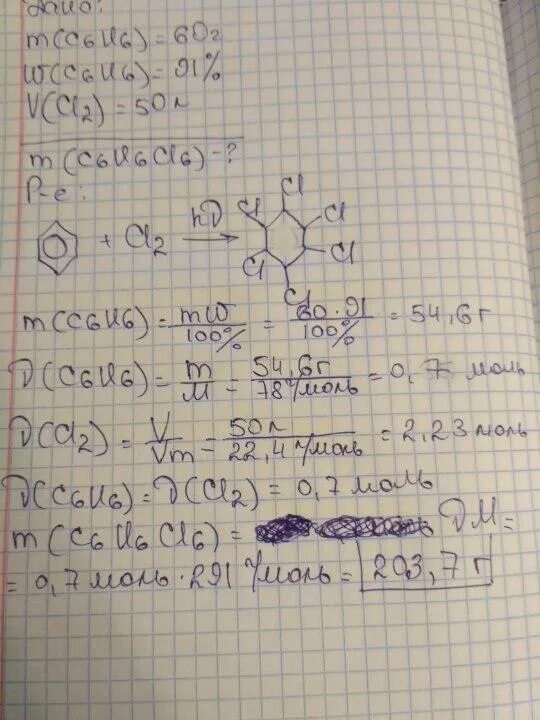 Дано:
m(C6H6) = 60г
W(C6H6) = 91%
V(Cl2) = 50л
m(C6H6Cl6) - ?
Р-е:
+ Cl2 hν → Cl Cl Cl Cl Cl Cl
m(C6H6) = mW / 100% = 60 · 91 / 100% = 54,6г
ν(C6H6) = m / M = 54,6г / 78г/моль = 0,7 моль
ν(Cl2) = V / Vm = 50л / 22,4г/моль = 2,23 моль
ν(C6H6) = ν(Cl2) = 0,7 моль
m(C6H6Cl6) = νM =
= 0,7 моль · 291г/моль = 203,7 г